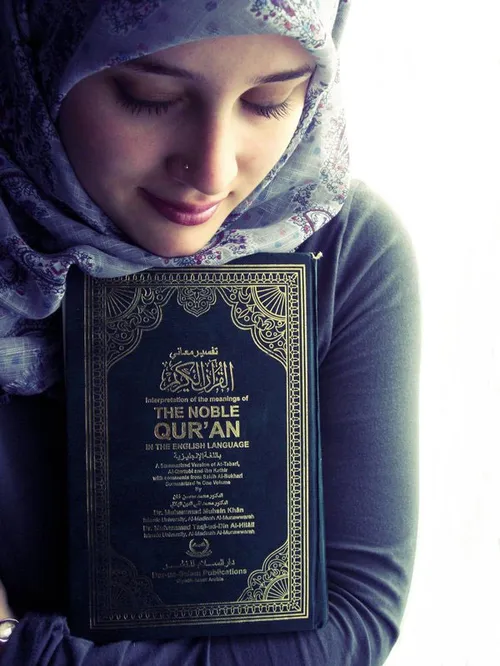 تفسير معاني
القرآن الكريم
Interpretation of the meanings of
THE NOBLE
QUR'AN
IN THE ENGLISH LANGUAGE
باللغة الإنجليزية
A Summarized Version of At-Tabari,
Al-Qurtubi and Ibn Kathir
with comments from Sahih Al-Bukhari
Summarized in One Volume
By
الدكتور محمد محسن خان
الدكتور محمد تقي الدين الهلالي
Dr. Muhammad Muhsin Khan
Islamic University, Al-Madinah Al-Munawwarah
Dr. Muhammad Taqi-ud-Din Al-Hilali
Islamic University, Al-Madinah Al-Munawwarah
دار السلام للنشر
Dar-us-Salam Publications
Saudi Arabia